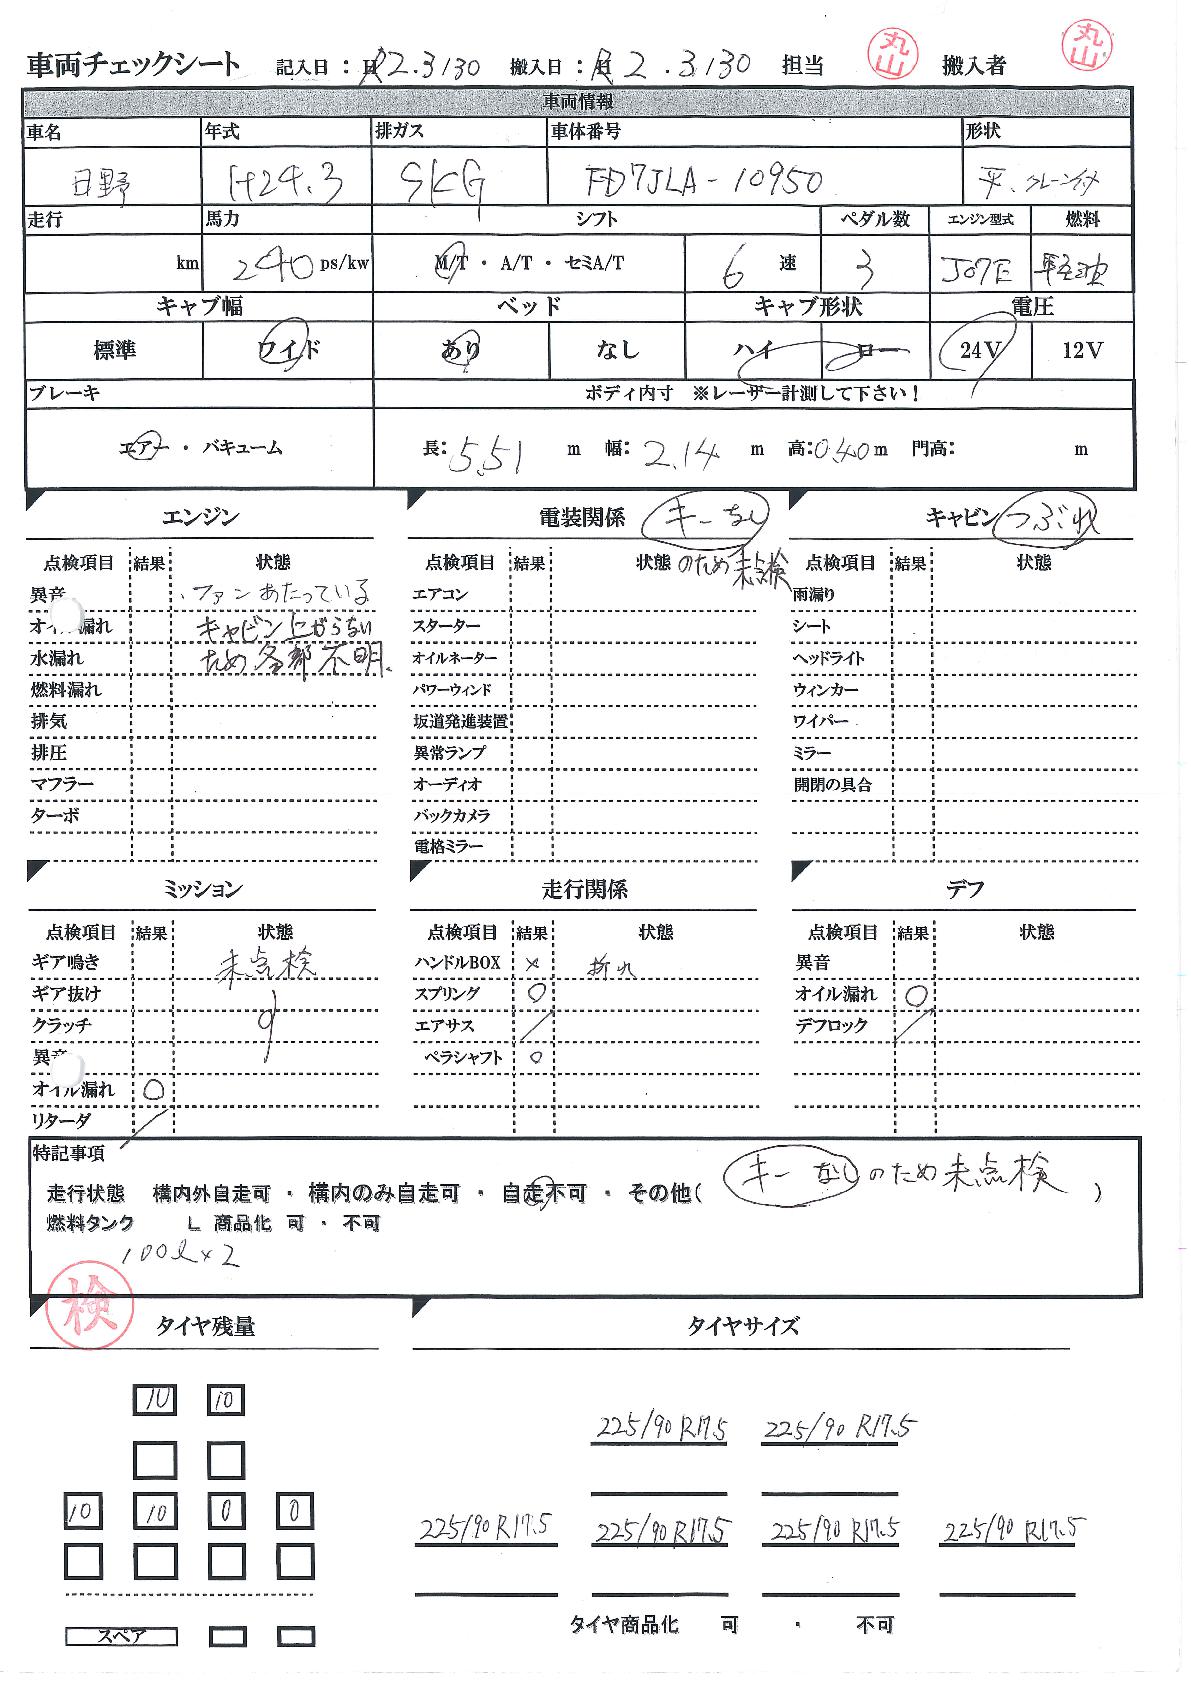 車両チェックシート 記入日：R2.3/30 搬入日：R2.3/30 担当 丸山 搬入者 丸山
車両情報
車名 年式 排ガス 車体番号 形状
日野 H24.3 SKG FD7JLA-10950 平、クレーン付
走行 馬力 シフト ペダル数 エンジン型式 燃料
km 240 ps/kw M/T ・ A/T ・ セミA/T 6 速 3 J07E 軽油
キャブ幅 ベッド キャブ形状 電圧
標準 ワイド あり なし ハイ ロー 24V 12V
ブレーキ ボディ内寸 ※レーザー計測して下さい！
エアー ・ バキューム 長：5.51 m 幅：2.14 m 高：0.40 m 門高： m
エンジン 電装関係 キーなし キャビン つぶれ
点検項目 結果 状態 点検項目 結果 状態 のため未点検 点検項目 結果 状態
異音 、ファンあたっている エアコン 雨漏り
オイル漏れ キャビン上がらない スターター シート
水漏れ ため各部不明、 オイルネーター ヘッドライト
燃料漏れ パワーウィンド ウィンカー
排気 坂道発進装置 ワイパー
排圧 異常ランプ ミラー
マフラー オーディオ 開閉の具合
ターボ バックカメラ
電格ミラー
ミッション 走行関係 デフ
点検項目 結果 状態 点検項目 結果 状態 点検項目 結果 状態
ギア鳴き 未点検 ハンドルBOX × 折れ 異音
ギア抜け スプリング ○ オイル漏れ ○
クラッチ エアサス ／ デフロック ／
異音 ペラシャフト ○
オイル漏れ ○
リターダ ／
特記事項
走行状態 構内外自走可 ・ 構内のみ自走可 ・ 自走不可 ・ その他( キーなしのため未点検 )
燃料タンク L 商品化 可 ・ 不可
100ℓ×2
検
タイヤ残量 タイヤサイズ
10 10
225/90 R17.5 225/90 R17.5
10 10 0 0
225/90 R17.5 225/90 R17.5 225/90 R17.5 225/90 R17.5
スペア
タイヤ商品化 可 ・ 不可